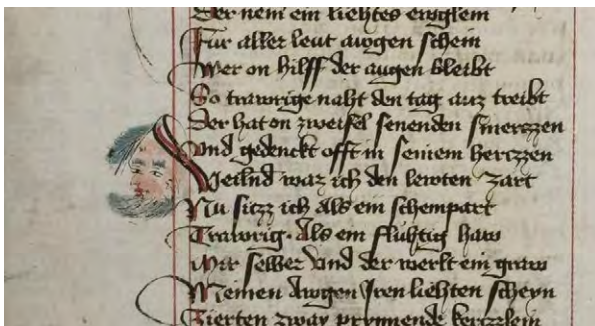 Der nem ein liehtes ewglem
Fur aller leut awgen schein
Wer on hilff der augen bleibt
So trawrige naht den tag auz treibt
Der hat on zweifel senenden smerczzen
Vnd gedenckt offt in seniem herczzen
Weilnd waz ich den lewten zart
Nu siczz ich als ein schempart
Trawrig. Als ein fluhtig haw
Mir selber vnd der werlt ein graw
Meinen Awgen Iren liehten scheyn
Zierten zway prynnende kerczlein